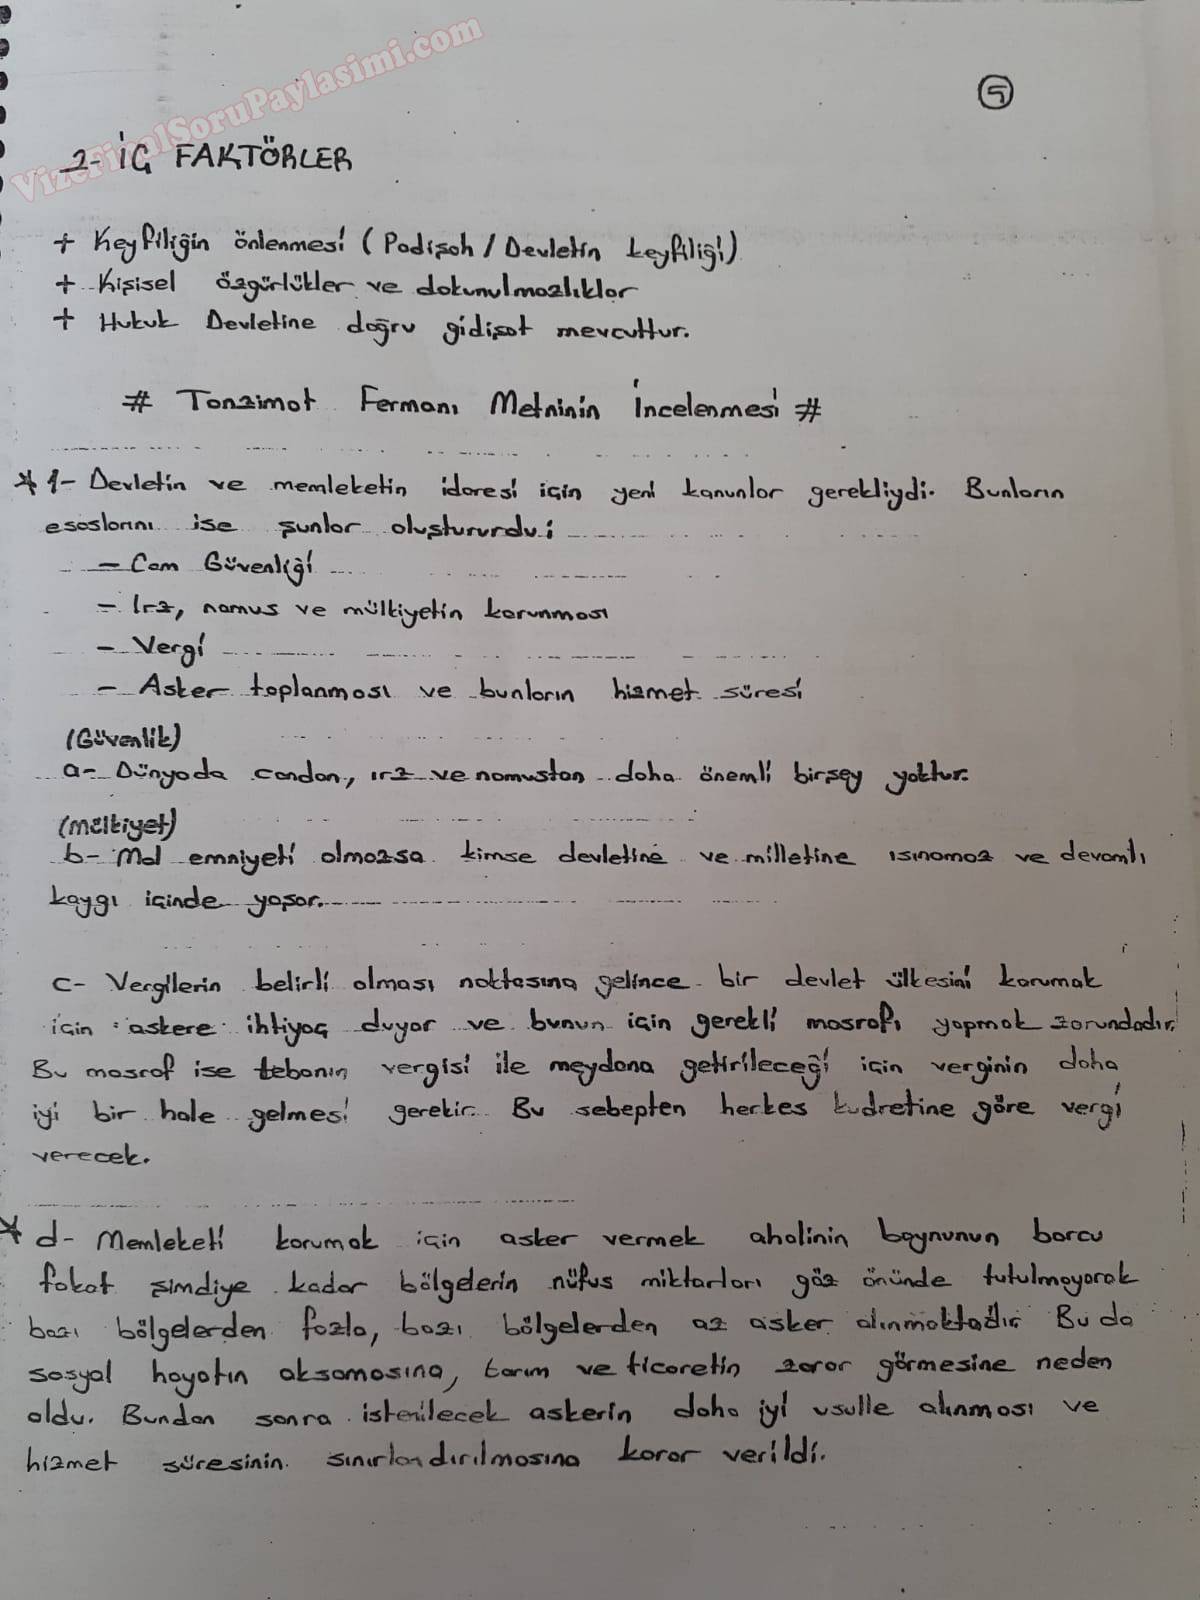 VizeFinalSoruPaylasimi.com
5
2- İÇ FAKTÖRLER
+ Keyfiliğin önlenmesi (Padişah / Devletin keyfiliği)
+ Kişisel özgürlükler ve dokunulmazlıklar
+ Hukuk Devletine doğru gidişat mevcuttur.
# Tanzimat Fermanı Metninin İncelenmesi #
* 1- Devletin ve memleketin idaresi için yeni kanunlar gerekliydi. Bunların
esaslarını ise şunlar oluştururdu:
- Can Güvenliği
- Irz, namus ve mülkiyetin korunması
- Vergi
- Asker toplanması ve bunların hizmet süresi
(Güvenlik)
a- Dünyada candan, ırz ve namustan daha önemli birşey yoktur.
(mülkiyet)
b- Mal emniyeti olmazsa kimse devletine ve milletine ısınamaz ve devamlı
kaygı içinde yaşar.
c- Vergilerin belirli olması noktasına gelince bir devlet ülkesini korumak
için askere ihtiyaç duyar ve bunun için gerekli masrafı yapmak zorundadır.
Bu masraf ise tebanın vergisi ile meydana getirileceği için verginin daha
iyi bir hale gelmesi gerekir. Bu sebepten herkes kudretine göre vergi
verecek.
* d- Memleketi korumak için asker vermek ahalinin boynunun borcu
fakat şimdiye kadar bölgelerin nüfus miktarları göz önünde tutulmayarak
bazı bölgelerden fazla, bazı bölgelerden az asker alınmaktadır. Bu da
sosyal hayatın aksamasına, tarım ve ticaretin zarar görmesine neden
oldu. Bundan sonra istenilecek askerin daha iyi usulle alınması ve
hizmet süresinin sınırlandırılmasına karar verildi.